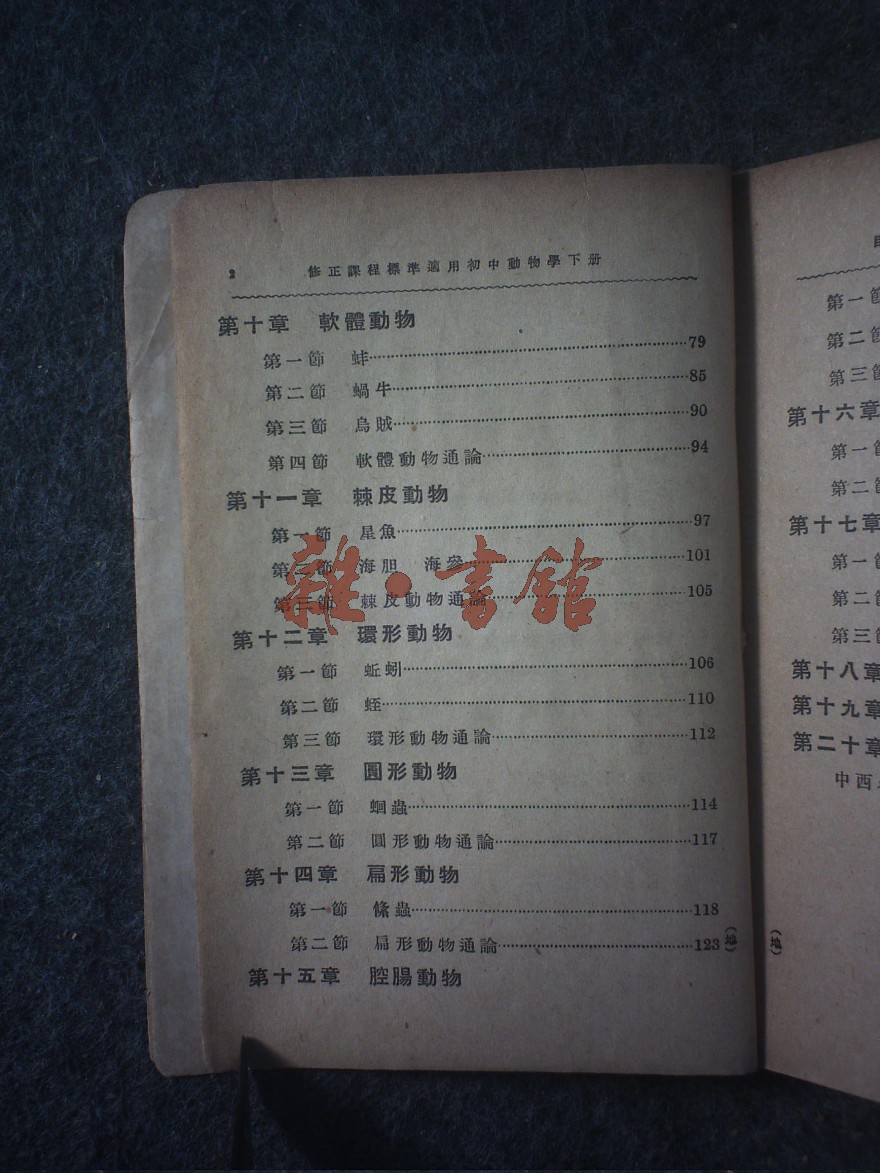 2 修正課程標準適用初中動物學下册
第十章 軟體動物
第一節 蚌……79
第二節 蝸牛……85
第三節 烏賊……90
第四節 軟體動物通論……94
第十一章 棘皮動物
第一節 星魚……97
第二節 海胆 海參……101
第三節 棘皮動物通論……105
雜·書館
第十二章 環形動物
第一節 蚯蚓……106
第二節 蛭……110
第三節 環形動物通論……112
第十三章 圓形動物
第一節 蛔蟲……114
第二節 圓形動物通論……117
第十四章 扁形動物
第一節 絛蟲……118
第二節 扁形動物通論……123
第十五章 腔腸動物
第一節
第二節
第三節
第十六章
第一節
第二節
第十七章
第一節
第二節
第三節
第十八章
第十九章
第二十章
中西